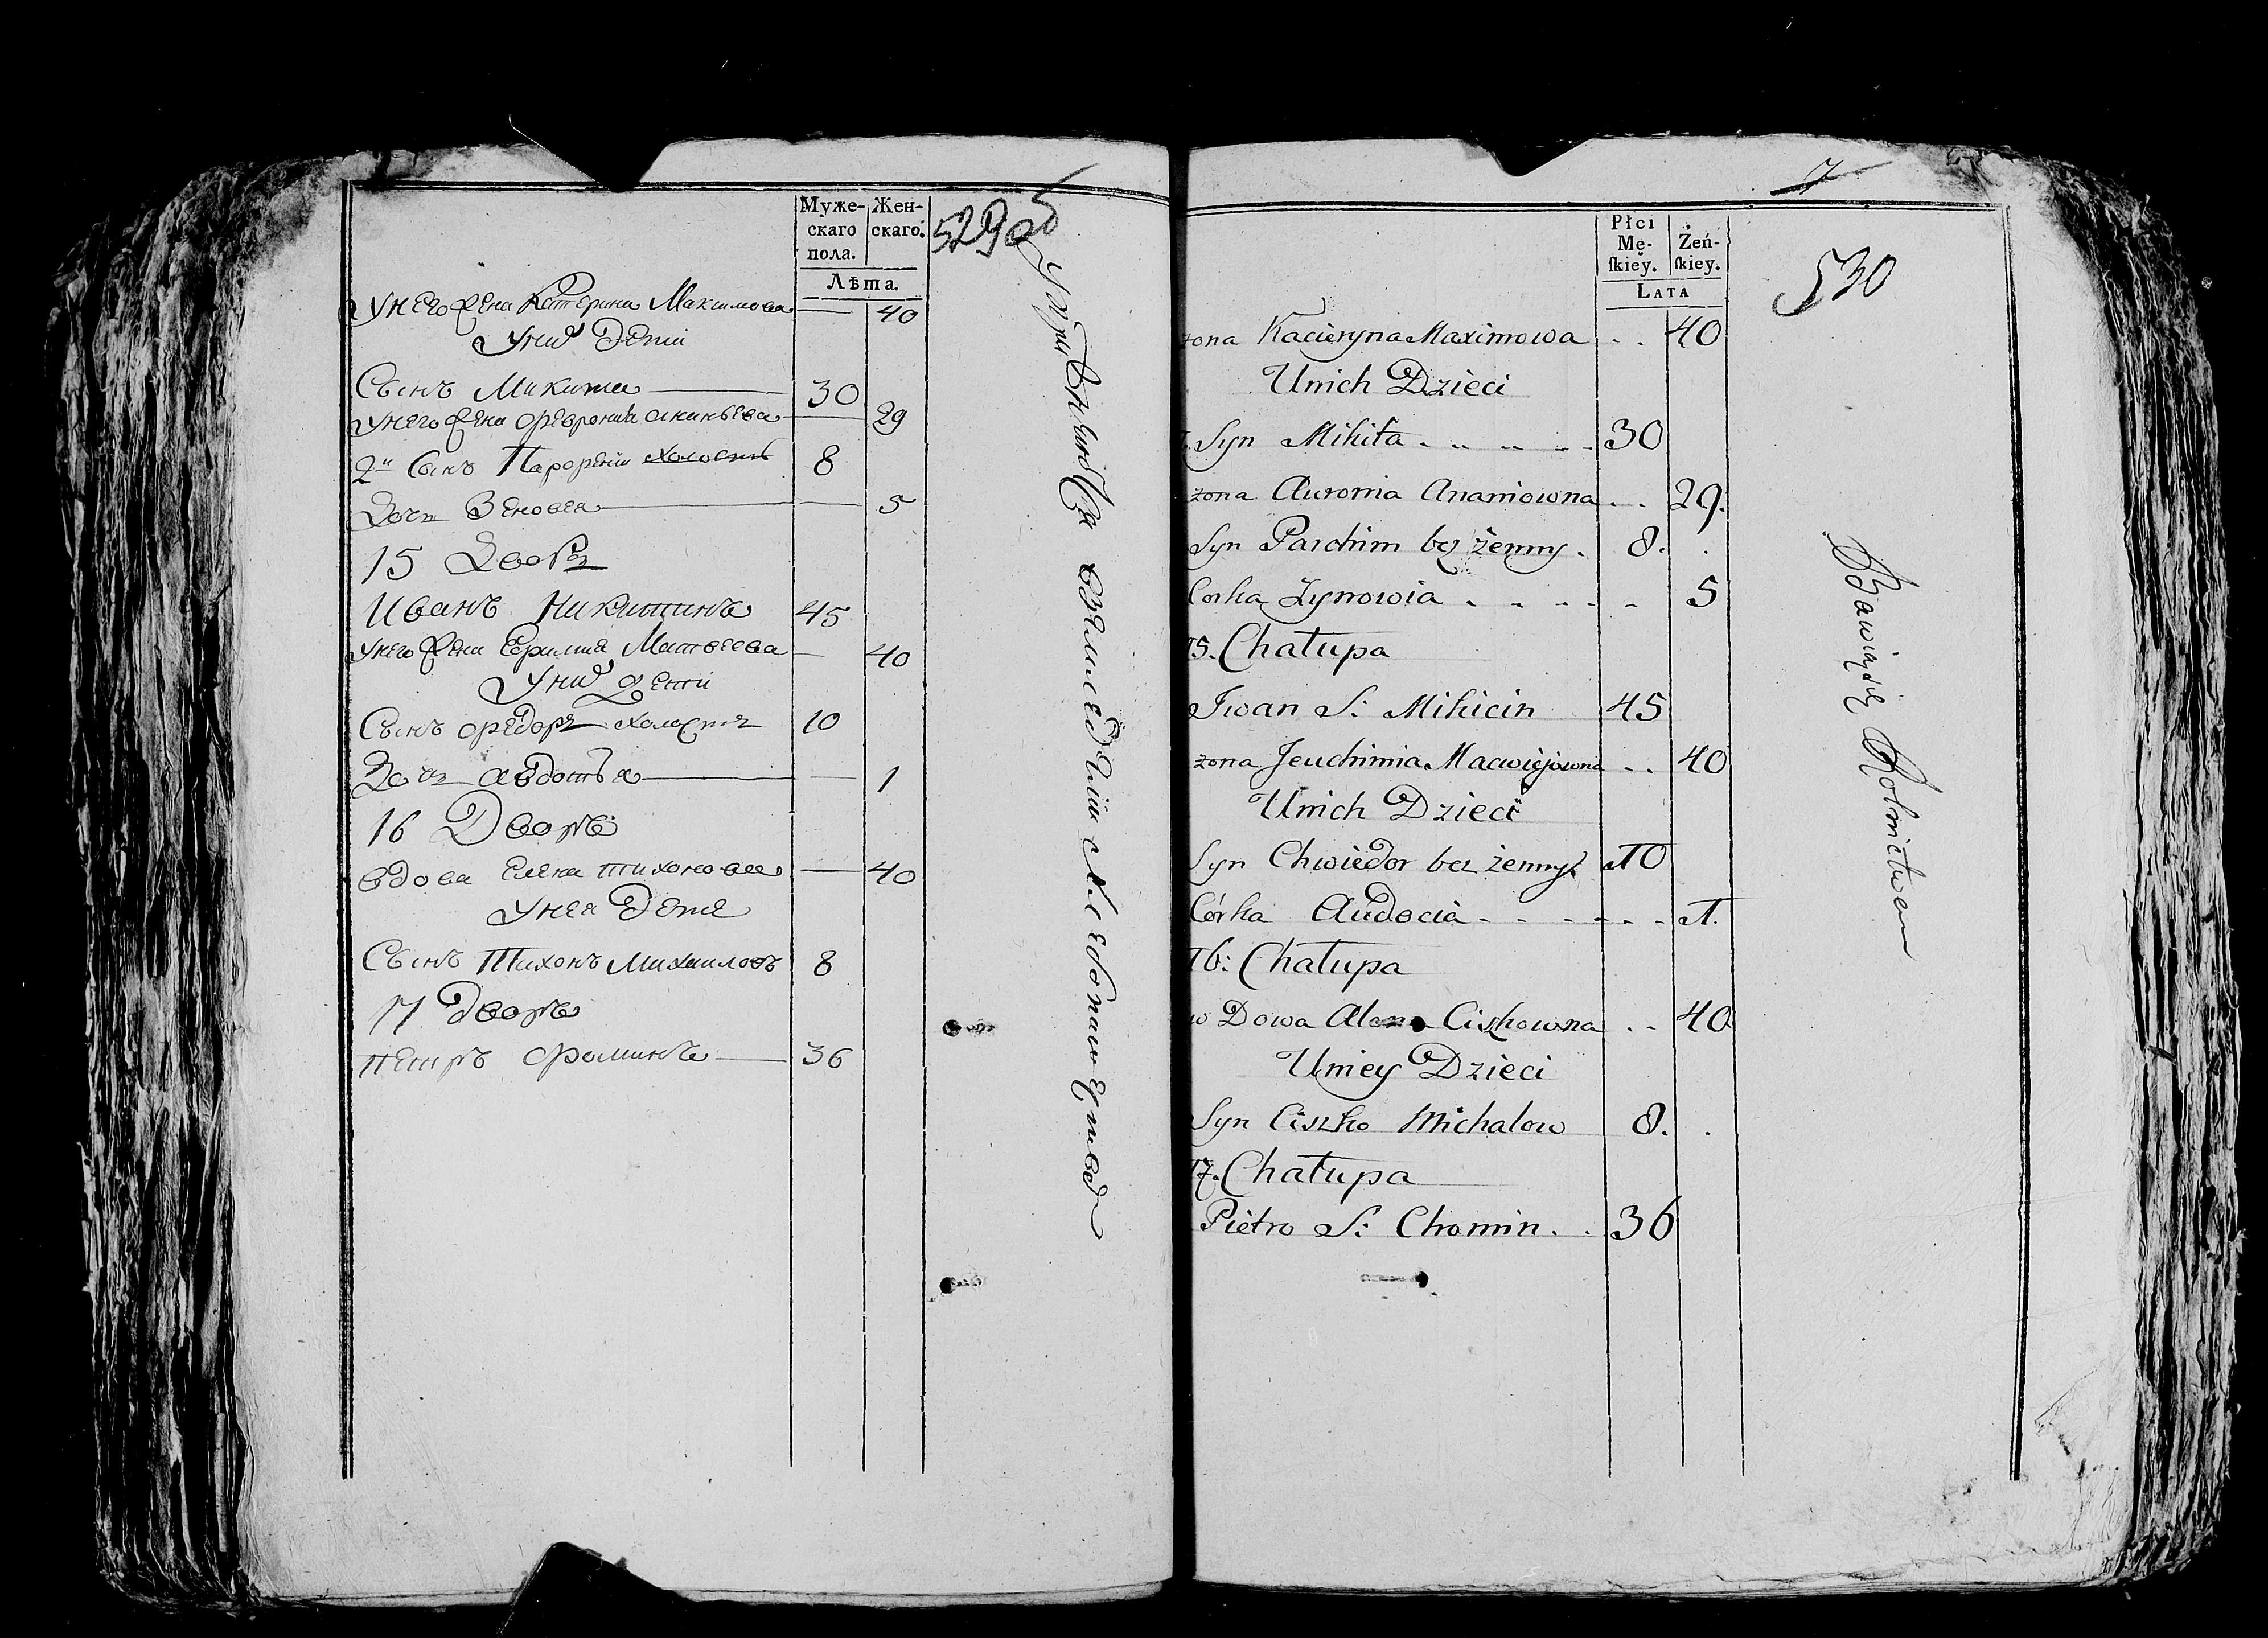 Муже-
скаго
пола.
Жен-
скаго.
Лѣта.
529об
У него жена Катерина Максимова — 40
У них дети
Сынъ Микита 30
У него жена Феврония Ананьева — 29
2й Сынъ Парфений холостъ 8
Дочь Зеновея — 5
15 Дворъ
Иванъ Никитинъ 45
У него жена Ефимия Матвеева — 40
У них дети
Сынъ Федоръ холостъ 10
Дочь Авдотья — 1
16 Дворъ
Вдова Елена Тихонова — 40
У нея дети
Сынъ Тихонъ Михаиловъ 8
17 Дворъ
Петръ Фоминъ 36
земледелии
7
530
Płci
Mę-
ſkiey.
Żeń-
ſkiey.
LATA
żona Kacieryna Maximowa . . 40
Unich Dzieci
Syn Mikita 30
żona Auronia Ananiowna . . 29.
Syn Parchim bez żenny. 8. .
Corka Zynowia 5
15. Chałupa
Iwan S: Mikicin 45
żona Jeuchimia Macwiejowna . . 40
Unich Dzieci
Syn Chwiedor bez żenny. 10
Córka Audocia 1.
16: Chałupa
wDowa Alena Ciszkowna . . 40
Uniey Dzieci
Syn Ciszko Michalow 8. .
17. Chałupa
Pietro S: Chomin . . 36
Bawią się Rolnictwem